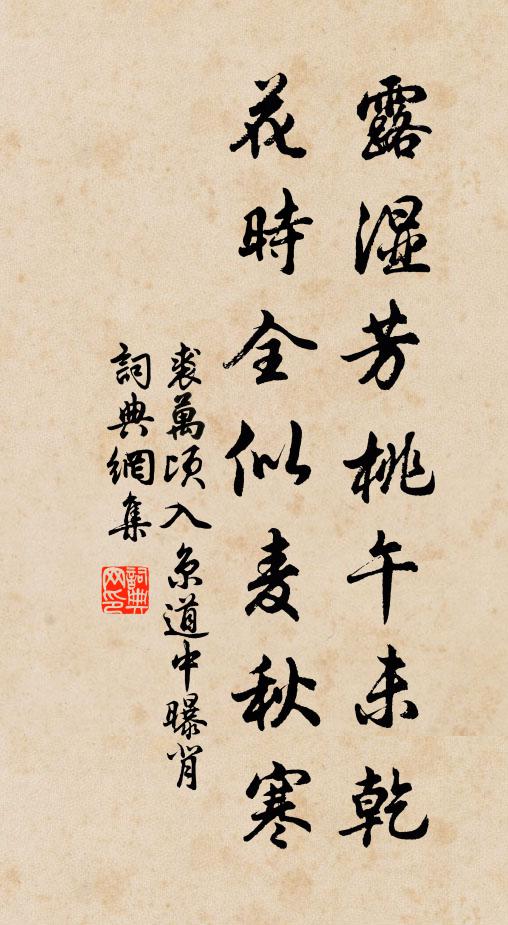 露湿芳桃午未乾
花時全似麦秋寒
裘萬頃入京道中曝背
詞典網集
詞典
网印